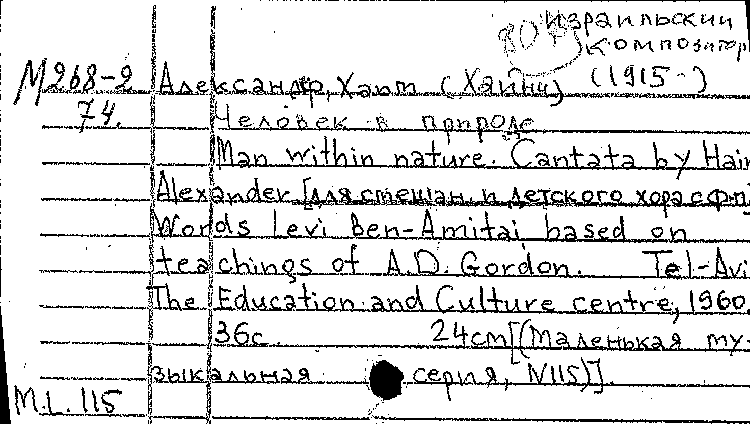 Израильский
804 композитор
М268-2 Александр, Хаим (Хайнц) (1915- )
74. Человек в природе
Man within nature. Cantata by Haim
Alexander [для смешан. и детского хора с ф-п.
Words Levi Ben-Amitai based on
teachings of A.D. Gordon. Tel-Avi
The Education and Culture centre, 1960.
36с 24см[(Маленькая му-
зыкальная серия, N115)].
M.L. 115